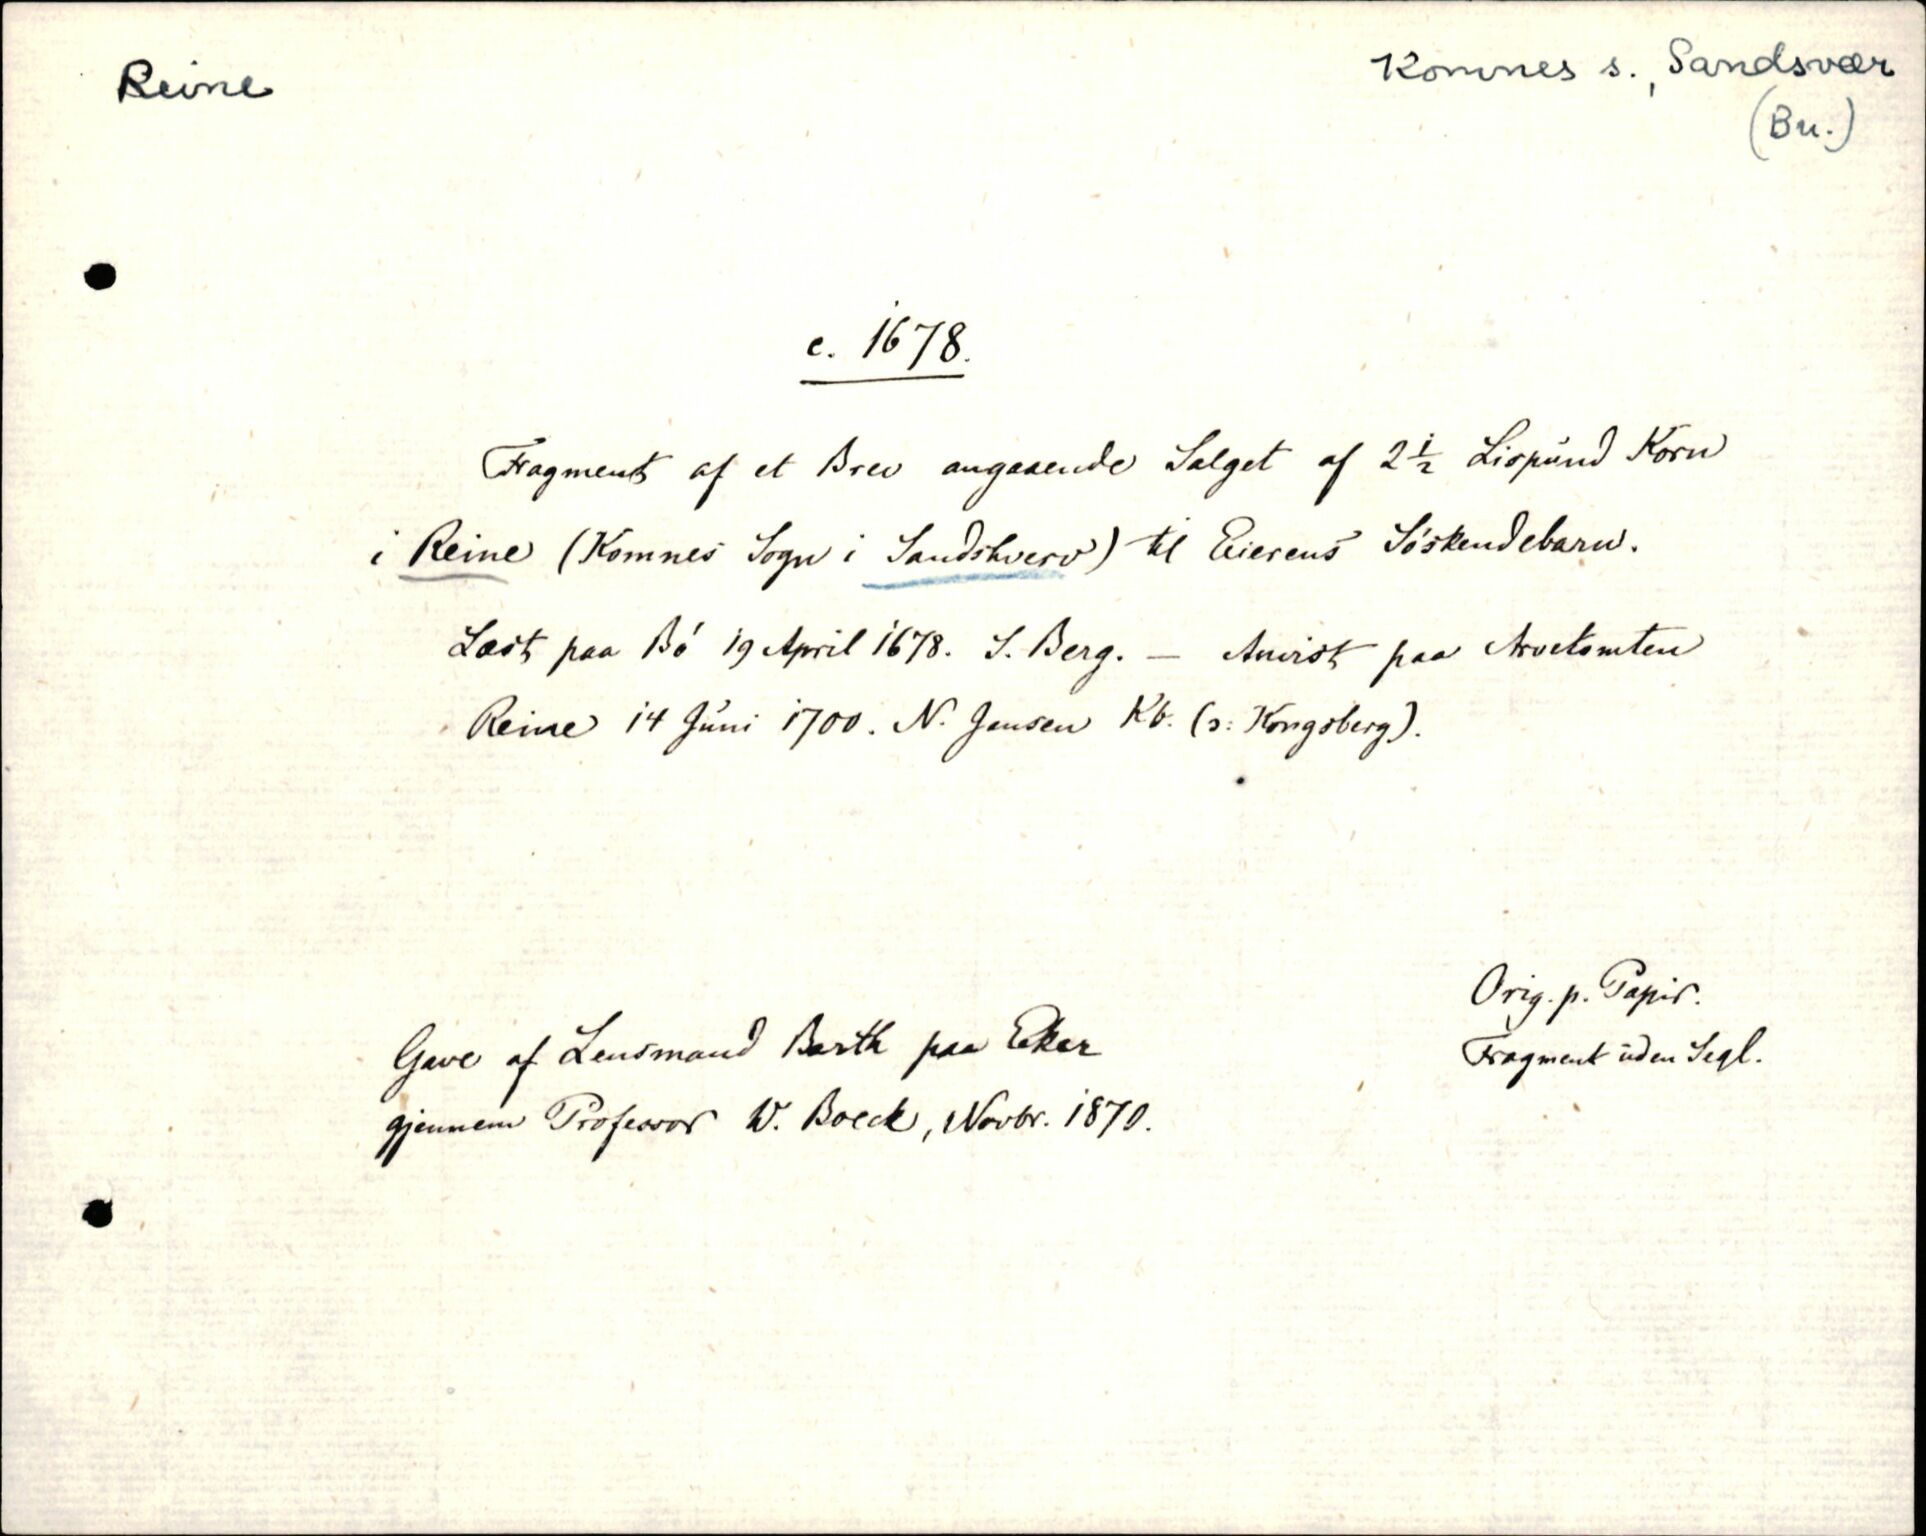 Reine
Komnes s., Sandsvær
(Bu.)
c. 1678.
Fragment af et Brev angaaende Salget af 2 ½ Lispund Korn
i Reine (Komnes Sogn i Sandshverv) til Eierens Söskendebarn.
Læst paa Bö 19 April 1678. S. Berg. — Anvist paa Arvetomten
Reine 14 Juni 1700. N. Jensen Kb. (ɔ: Kongsberg).
Orig. p. Papir.
Fragment uden Segl.
Gave af Lensmand Barth paa Eker
gjennem Professor W. Boeck, Novbr. 1870.